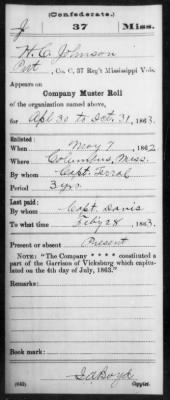 (Confederate.)
J 37 Miss.
H. C. Johnson
Pvt, Co. C, 37 Reg't Mississippi Vols.
Appears on
Company Muster Roll
of the organization named above,
for Apl 30 to Oct. 31, 1863.
Enlisted:
When May 7, 1862
Where Columbus, Miss.
By whom Capt. Terral
Period 3 yrs.
Last paid:
By whom Capt. Davis
To what time Feby 28, 1863.
Present or absent Present
NOTE: "The Company * * * * constituted a
part of the Garrison of Vicksburg which capitu-
lated on the 4th day of July, 1863."
Remarks:
Book mark:
S A Boyd
(642) Copyist.